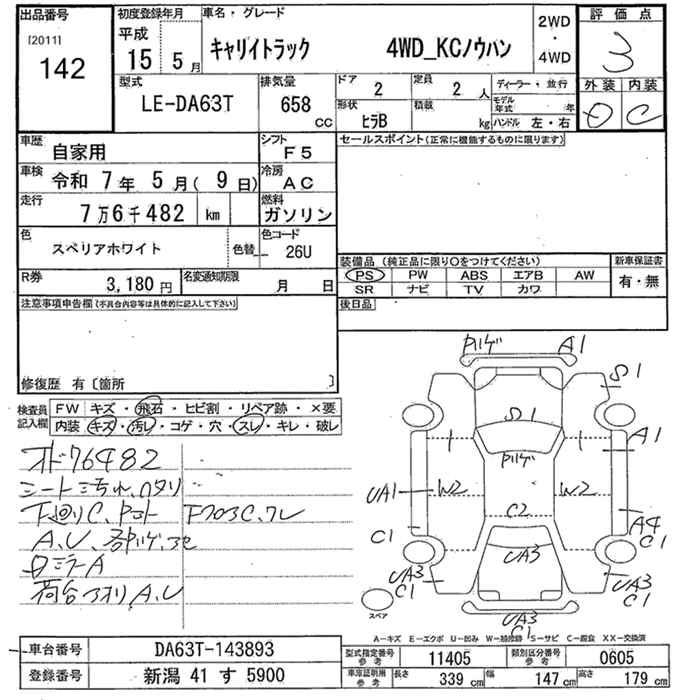 出品番号
[2011]
142
初度登録年月
平成
15年 5月
車名・グレード
キャリイトラック 4WD_KCノウハン
2WD
・
4WD
評価点
3
外装 内装
D C
型式
LE-DA63T
排気量
658
CC
ドア 2
定員 2人
形状 ヒラB
積載 kg
ディーラー・並行
モデル年式 年
ハンドル 左・右
車歴
自家用
シフト F5
車検 令和 7年 5月( 9日)
冷房 AC
走行 7万6千482 km
燃料 ガソリン
色
スペリアホワイト
色替
色コード
26U
R券 3,180円
名変通知期限 月 日
セールスポイント(正常に機能するものに限ります)
装備品(純正品に限り○をつけてください)
PS PW ABS エアB AW
SR ナビ TV カワ
新車保証書
有・無
後日品
注意事項申告欄(不具合内容等は具体的に記入して下さい)
修復歴 有〔箇所 〕
検査員記入欄
FW キズ・飛石・ヒビ割・リペア跡・×要
内装 キズ・汚レ・コゲ・穴・スレ・キレ・破レ
オド76482
シート汚れ、ハタリ
下廻りC、
A、U、
ミラーA
荷台アオリA、U
ハゲ A1
S1
S1
A1
ハゲ
UA1 W2 W2
C2
C1
A4
C1
UA3
UA3
C1
UA3
C1
UA3
C1
スペア
A-キズ E-エクボ U-凹み W-補修跡 S-サビ C-腐食 XX-交換済
車台番号 DA63T-143893
登録番号 新潟 41 す 5900
型式指定番号 参考 11405
類別区分番号 参考 0605
車庫証明用 参考 長さ 339 cm 幅 147 cm 高さ 179 cm